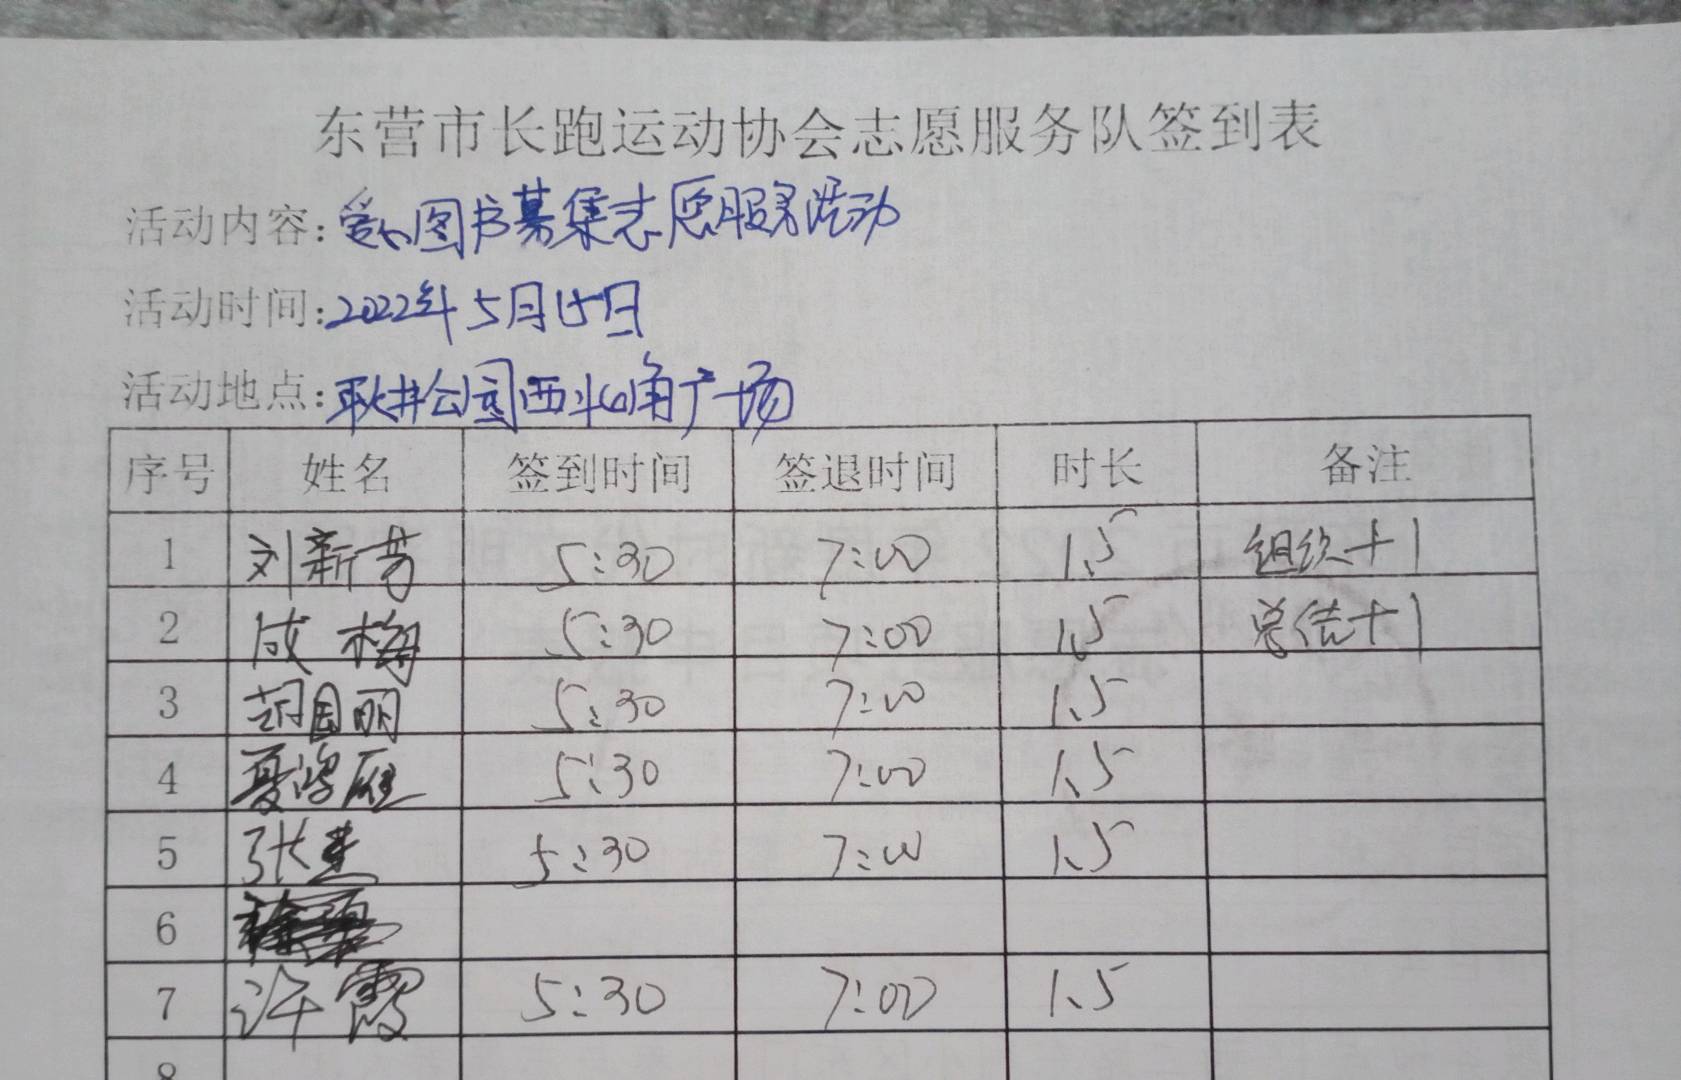 东营市长跑运动协会志愿服务队签到表
活动内容:爱心图书募集志愿服务活动
活动时间:2022年5月15日
活动地点:耿井公园西北角广场
序号 姓名 签到时间 签退时间 时长 备注
1 刘新 5:30 7:00 1.5 组织+1
2 成梅 5:30 7:00 1.5 总结+1
3 胡国丽 5:30 7:00 1.5
4 聂鸿雁 5:30 7:00 1.5
5 张 5:30 7:00 1.5
6
7 许霞 5:30 7:00 1.5
8